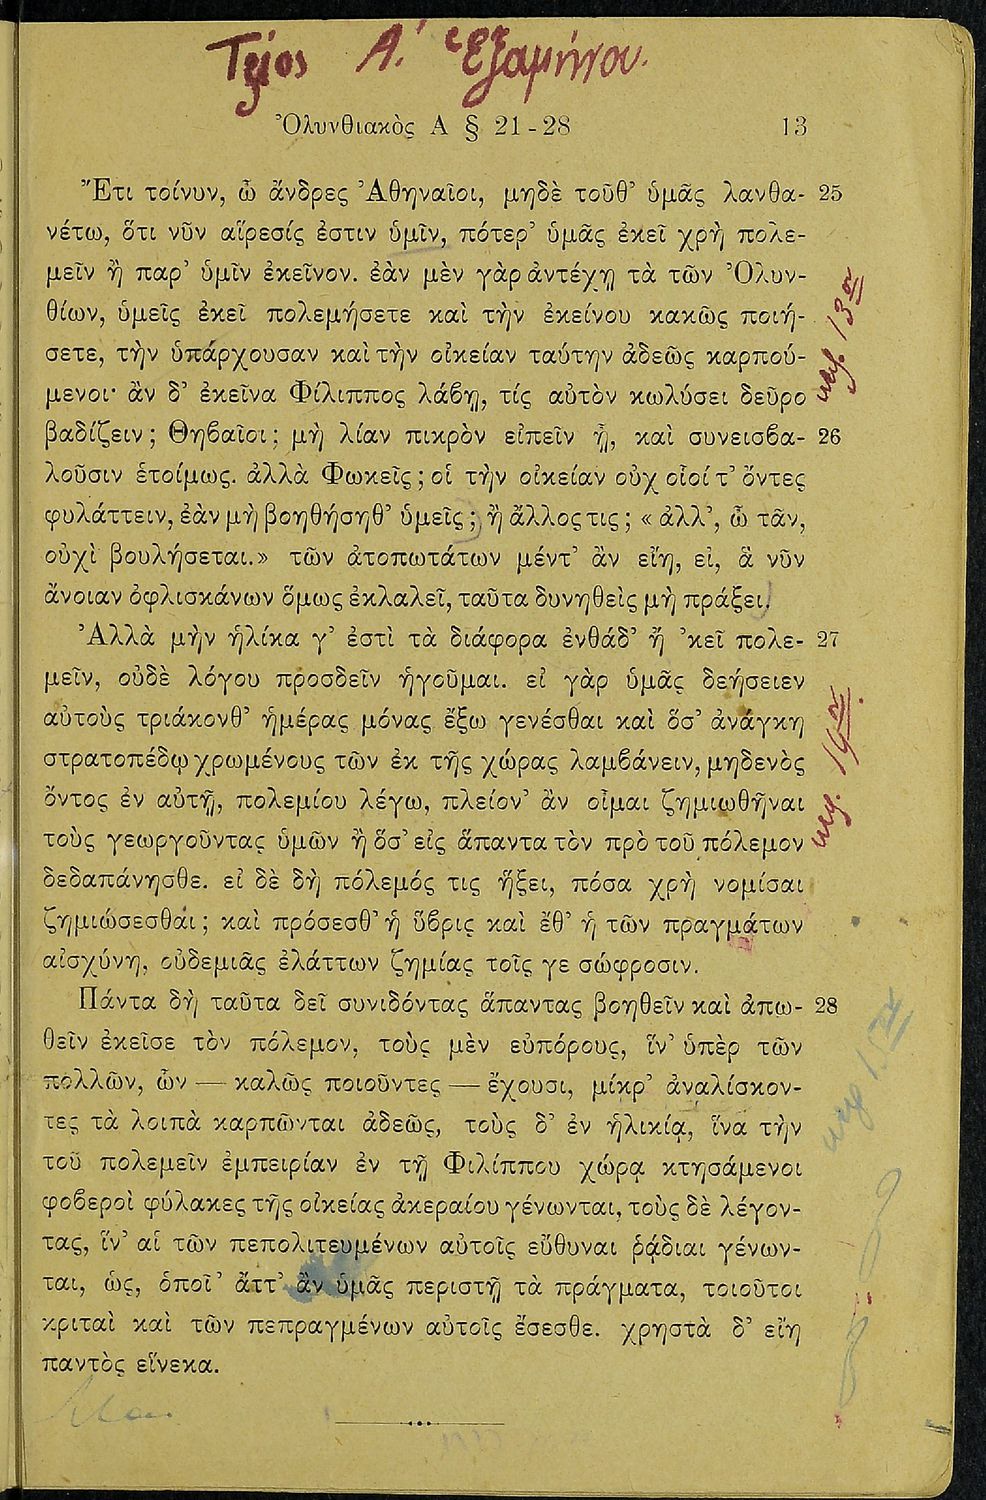 Τέλος Α΄ Ἑξαμήνου.
Ὀλυνθιακὸς Α § 21-28 13
Ἔτι τοίνυν, ὦ ἄνδρες Ἀθηναῖοι, μηδὲ τοῦθ’ ὑμᾶς λανθα- 25
νέτω, ὅτι νῦν αἵρεσίς ἐστιν ὑμῖν, πότερ’ ὑμᾶς ἐκεῖ χρὴ πολε-
μεῖν ἢ παρ’ ὑμῖν ἐκεῖνον. ἐὰν μὲν γὰρ ἀντέχῃ τὰ τῶν Ὀλυν-
θίων, ὑμεῖς ἐκεῖ πολεμήσετε καὶ τὴν ἐκείνου κακῶς ποιή-
σετε, τὴν ὑπάρχουσαν καὶ τὴν οἰκείαν ταύτην ἀδεῶς καρπού-
μενοι· ἂν δ’ ἐκεῖνα Φίλιππος λάβῃ, τίς αὐτὸν κωλύσει δεῦρο
κεφ. 13ον
βαδίζειν; Θηβαῖοι; μὴ λίαν πικρὸν εἰπεῖν ᾖ, καὶ συνεισβα- 26
λοῦσιν ἑτοίμως. ἀλλὰ Φωκεῖς; οἱ τὴν οἰκείαν οὐχ οἷοί τ’ ὄντες
φυλάττειν, ἐὰν μὴ βοηθήσηθ’ ὑμεῖς; ἢ ἄλλος τις; « ἀλλ’, ὦ τᾶν,
οὐχὶ βουλήσεται.» τῶν ἀτοπωτάτων μέντ’ ἂν εἴη, εἰ, ἃ νῦν
ἄνοιαν ὀφλισκάνων ὅμως ἐκλαλεῖ, ταῦτα δυνηθεὶς μὴ πράξει.
Ἀλλὰ μὴν ἡλίκα γ’ ἐστὶ τὰ διάφορα ἐνθάδ’ ἤ ’κεῖ πολε- 27
μεῖν, οὐδὲ λόγου προσδεῖν ἡγοῦμαι. εἰ γὰρ ὑμᾶς δεήσειεν
αὐτοὺς τριάκονθ’ ἡμέρας μόνας ἔξω γενέσθαι καὶ ὅσ’ ἀνάγκη
στρατοπέδῳ χρωμένους τῶν ἐκ τῆς χώρας λαμβάνειν, μηδενὸς
ὄντος ἐν αὐτῇ, πολεμίου λέγω, πλείον’ ἂν οἶμαι ζημιωθῆναι
τοὺς γεωργοῦντας ὑμῶν ἢ ὅσ’ εἰς ἅπαντα τὸν πρὸ τοῦ πόλεμον
δεδαπάνησθε. εἰ δὲ δὴ πόλεμός τις ἥξει, πόσα χρὴ νομίσαι
ζημιώσεσθαι; καὶ πρόσεσθ’ ἡ ὕβρις καὶ ἔθ’ ἡ τῶν πραγμάτων
αἰσχύνη, οὐδεμιᾶς ἐλάττων ζημίας τοῖς γε σώφροσιν.
Πάντα δὴ ταῦτα δεῖ συνιδόντας ἅπαντας βοηθεῖν καὶ ἀπω- 28
θεῖν ἐκεῖσε τὸν πόλεμον, τοὺς μὲν εὐπόρους, ἵν’ ὑπὲρ τῶν
πολλῶν, ὧν — καλῶς ποιοῦντες — ἔχουσι, μίκρ’ ἀναλίσκον-
τες τὰ λοιπὰ καρπῶνται ἀδεῶς, τοὺς δ’ ἐν ἡλικίᾳ, ἵνα τὴν
κεφ 15ον
τοῦ πολεμεῖν ἐμπειρίαν ἐν τῇ Φιλίππου χώρᾳ κτησάμενοι
φοβεροὶ φύλακες τῆς οἰκείας ἀκεραίου γένωνται, τοὺς δὲ λέγον-
τας, ἵν’ αἱ τῶν πεπολιτευμένων αὐτοῖς εὔθυναι ῥᾴδιαι γένων-
ται, ὡς, ὁποῖ’ ἄττ’ ἂν ὑμᾶς περιστῇ τὰ πράγματα, τοιοῦτοι
κριταὶ καὶ τῶν πεπραγμένων αὐτοῖς ἔσεσθε. χρηστὰ δ’ εἴη
παντὸς εἵνεκα.